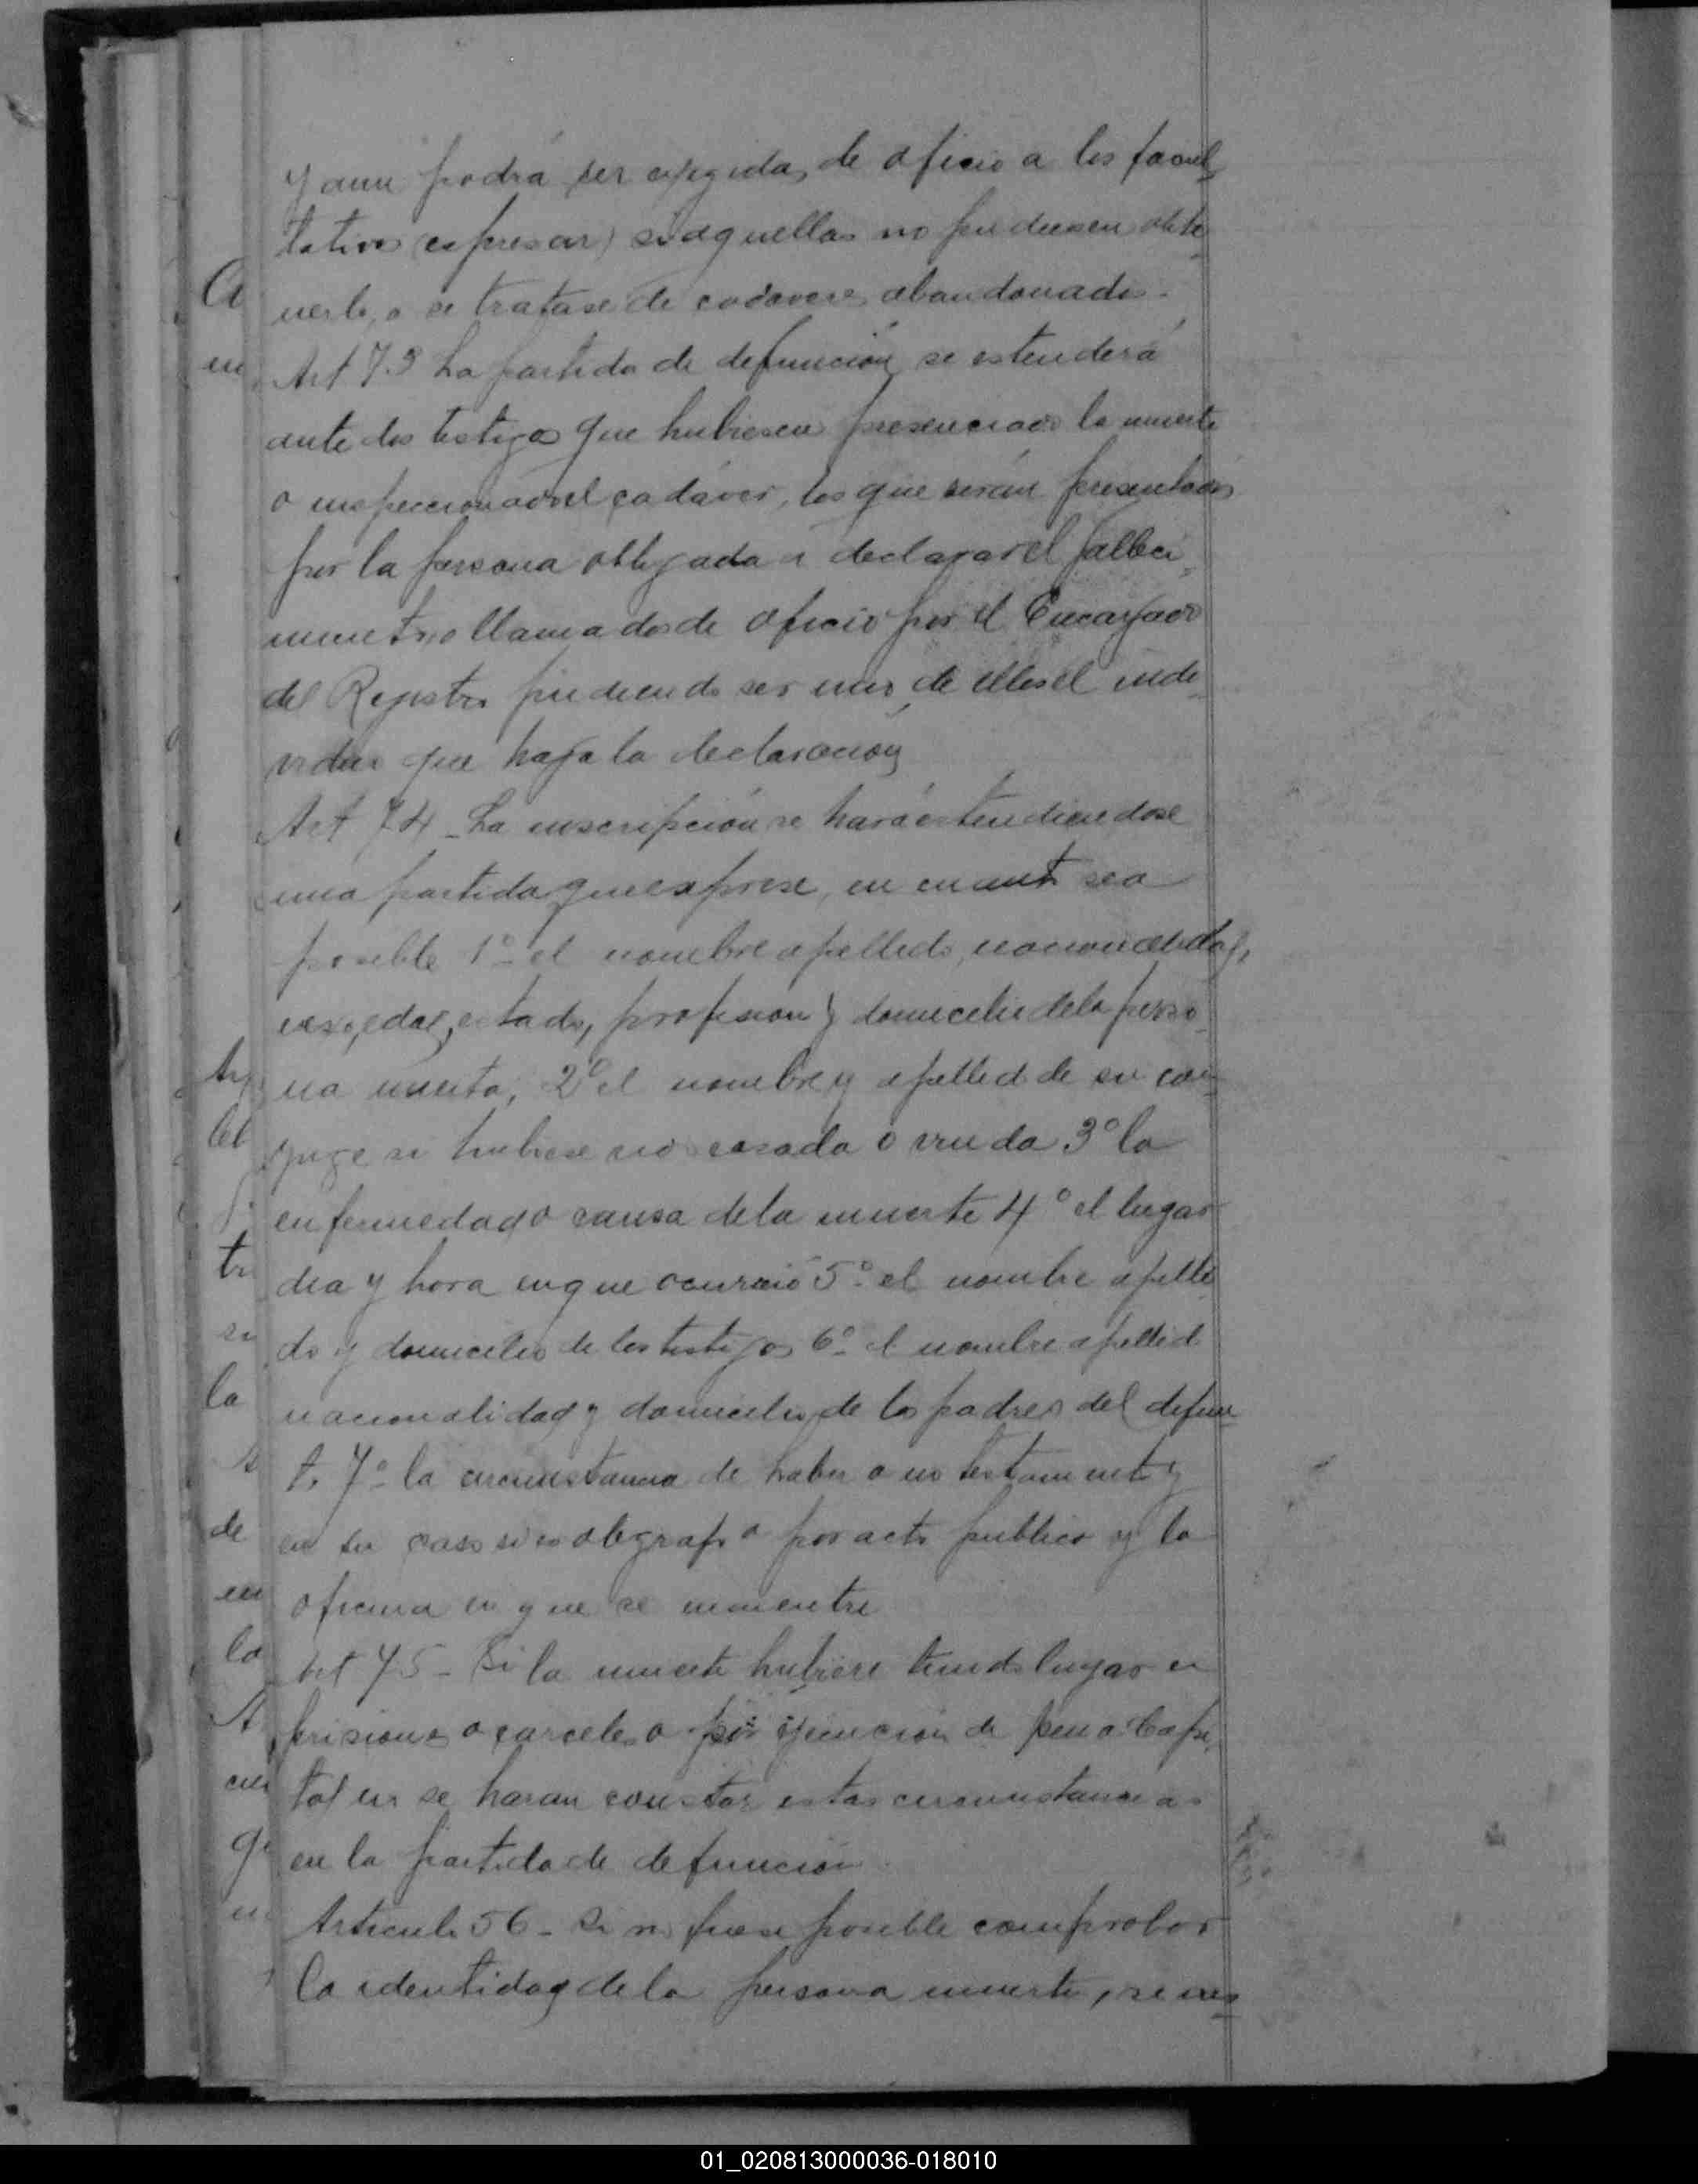 y aun podrá ser exigida de oficio a los facul
tativos (expresar) si aquellas no pudiesen obte
nerlo, o se tratase de cadaveres abandonados.
Art 73 La partida de defunción se estenderá
ante dos testigos que hubiesen presenciado la muerte
o inspeccionado el cadáver, los que serán presentados
por la persona obligada a declarar el falleci
miento, o llamados de oficio por el Encargado
del Registro pudiendo ser uno de ellos el indi
viduo que haga la declaración
Art 74 - La inscripción se hará estendiendose
una partida que exprese, en cuanto sea
posible 1º el nombre apellido, nacionalidad,
sexo, edad, estado, profesion y domicilio de la perso
na muerta; 2º el nombre y apellido de su con
yuge si hubiese sido casada o viuda 3º la
enfermedad o causa de la muerte 4º el lugar
dia y hora en que ocurrió 5º el nombre apelli
do y domicilio de los testigos 6º el nombre apellido
nacionalidad y domicilio de los padres del difun
to 7º la circunstancia de haber o no testamento y
en su caso si es olografo o por acto publico y la
oficina en que se encuentre
Art 75 - Si la muerte hubiere tenido lugar en
prisiones o carceles o por ejecución de pena Capi
tal no se haran constar estas circunstancias
en la partida de defunción
Articulo 56 - Si no fuese posible comprobar
la identidad de la persona muerta, se ins
01_020813000036-018010